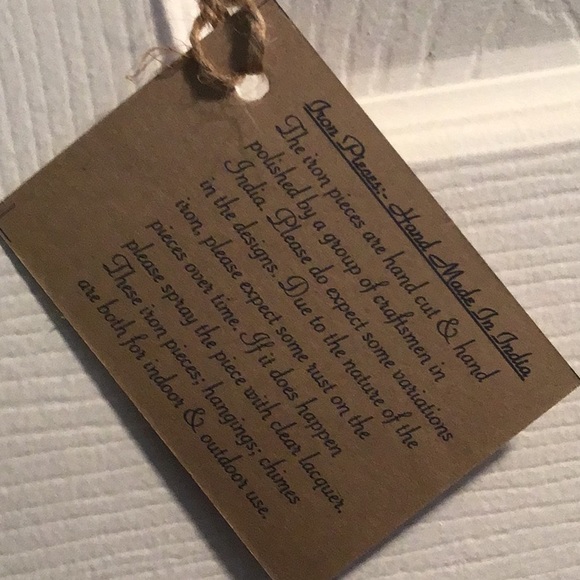 Iron Pieces:- Hand Made In India
The iron pieces are hand cut & hand
polished by a group of craftsmen in
India. Please do expect some variations
in the designs. Due to the nature of the
iron, please expect some rust on the
pieces over time. If it does happen
please spray the piece with clear lacquer.
These iron pieces; hangings; chimes
are both for indoor & outdoor use.